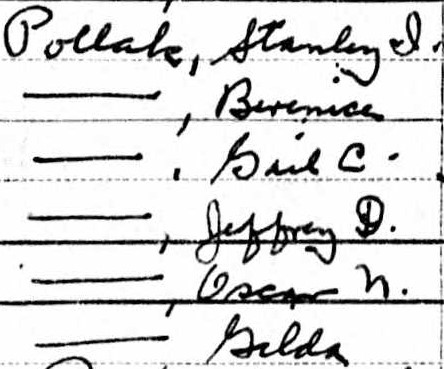 Pollak, Stanley I.
——, Berenice
——, Gail C.
——, Jeffrey D.
——, Oscar N.
—— Gilda